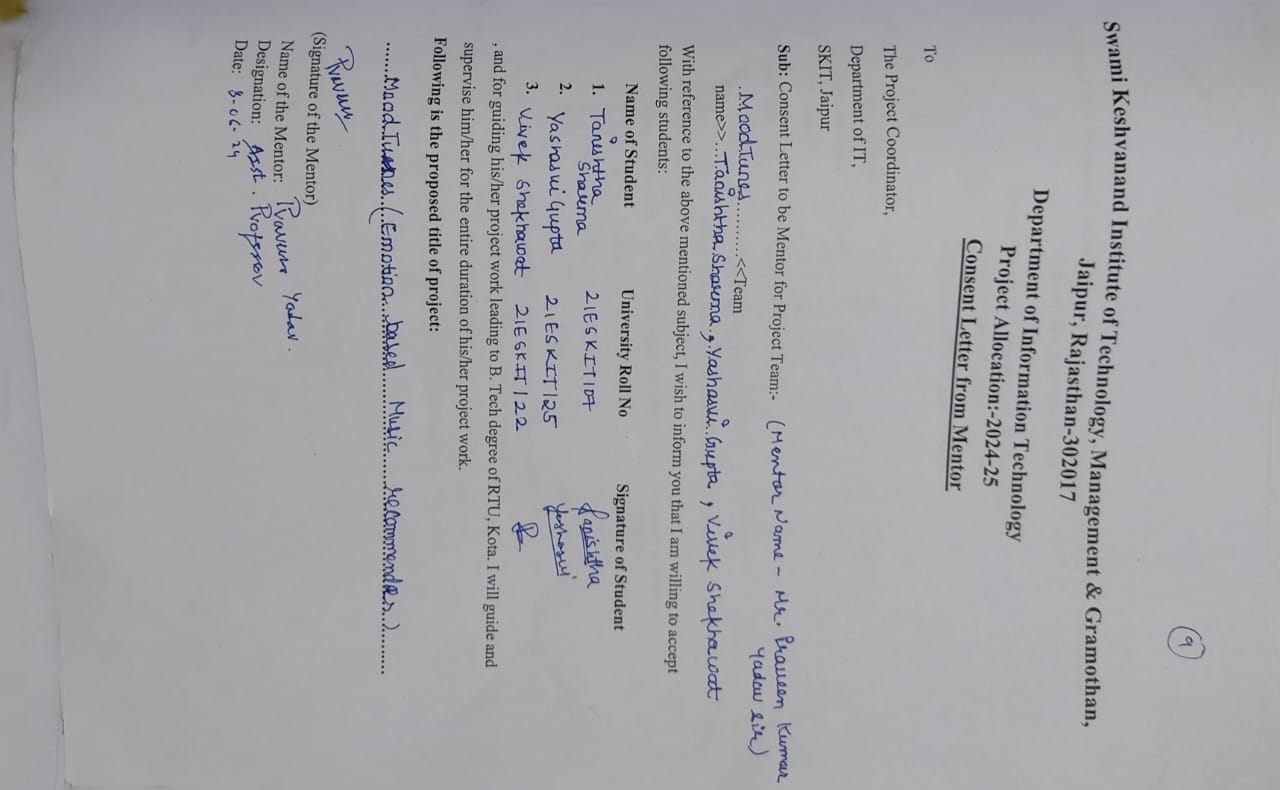 9
Swami Keshvanand Institute of Technology, Management & Gramothan,
Jaipur, Rajasthan-302017
Department of Information Technology
Project Allocation:-2024-25
Consent Letter from Mentor
To
The Project Coordinator,
Department of IT,
SKIT, Jaipur
Sub: Consent Letter to be Mentor for Project Team:- (Mentor Name - Mr. Praveen Kumar
Yadav Sir)
.MoodTunes..........<<Team
name>>...Tanishtha Sharma, Yashasvi Gupta, Vivek Shekhawat
With reference to the above mentioned subject, I wish to inform you that I am willing to accept
following students:
Name of Student University Roll No Signature of Student
1. Tanishtha Sharma 21ESKIT107 Tanishtha
2. Yashasvi Gupta 21ESKIT125 Yashasvi
3. Vivek Shekhawat 21ESKIT122
, and for guiding his/her project work leading to B. Tech degree of RTU, Kota. I will guide and
supervise him/her for the entire duration of his/her project work.
Following is the proposed title of project:
.......MoodTunes.(.Emotion..based...Music...recommender.)..........
Praveen
(Signature of the Mentor)
Name of the Mentor: Praveen Yadav.
Designation: Asst. Professor
Date: 8-06-24